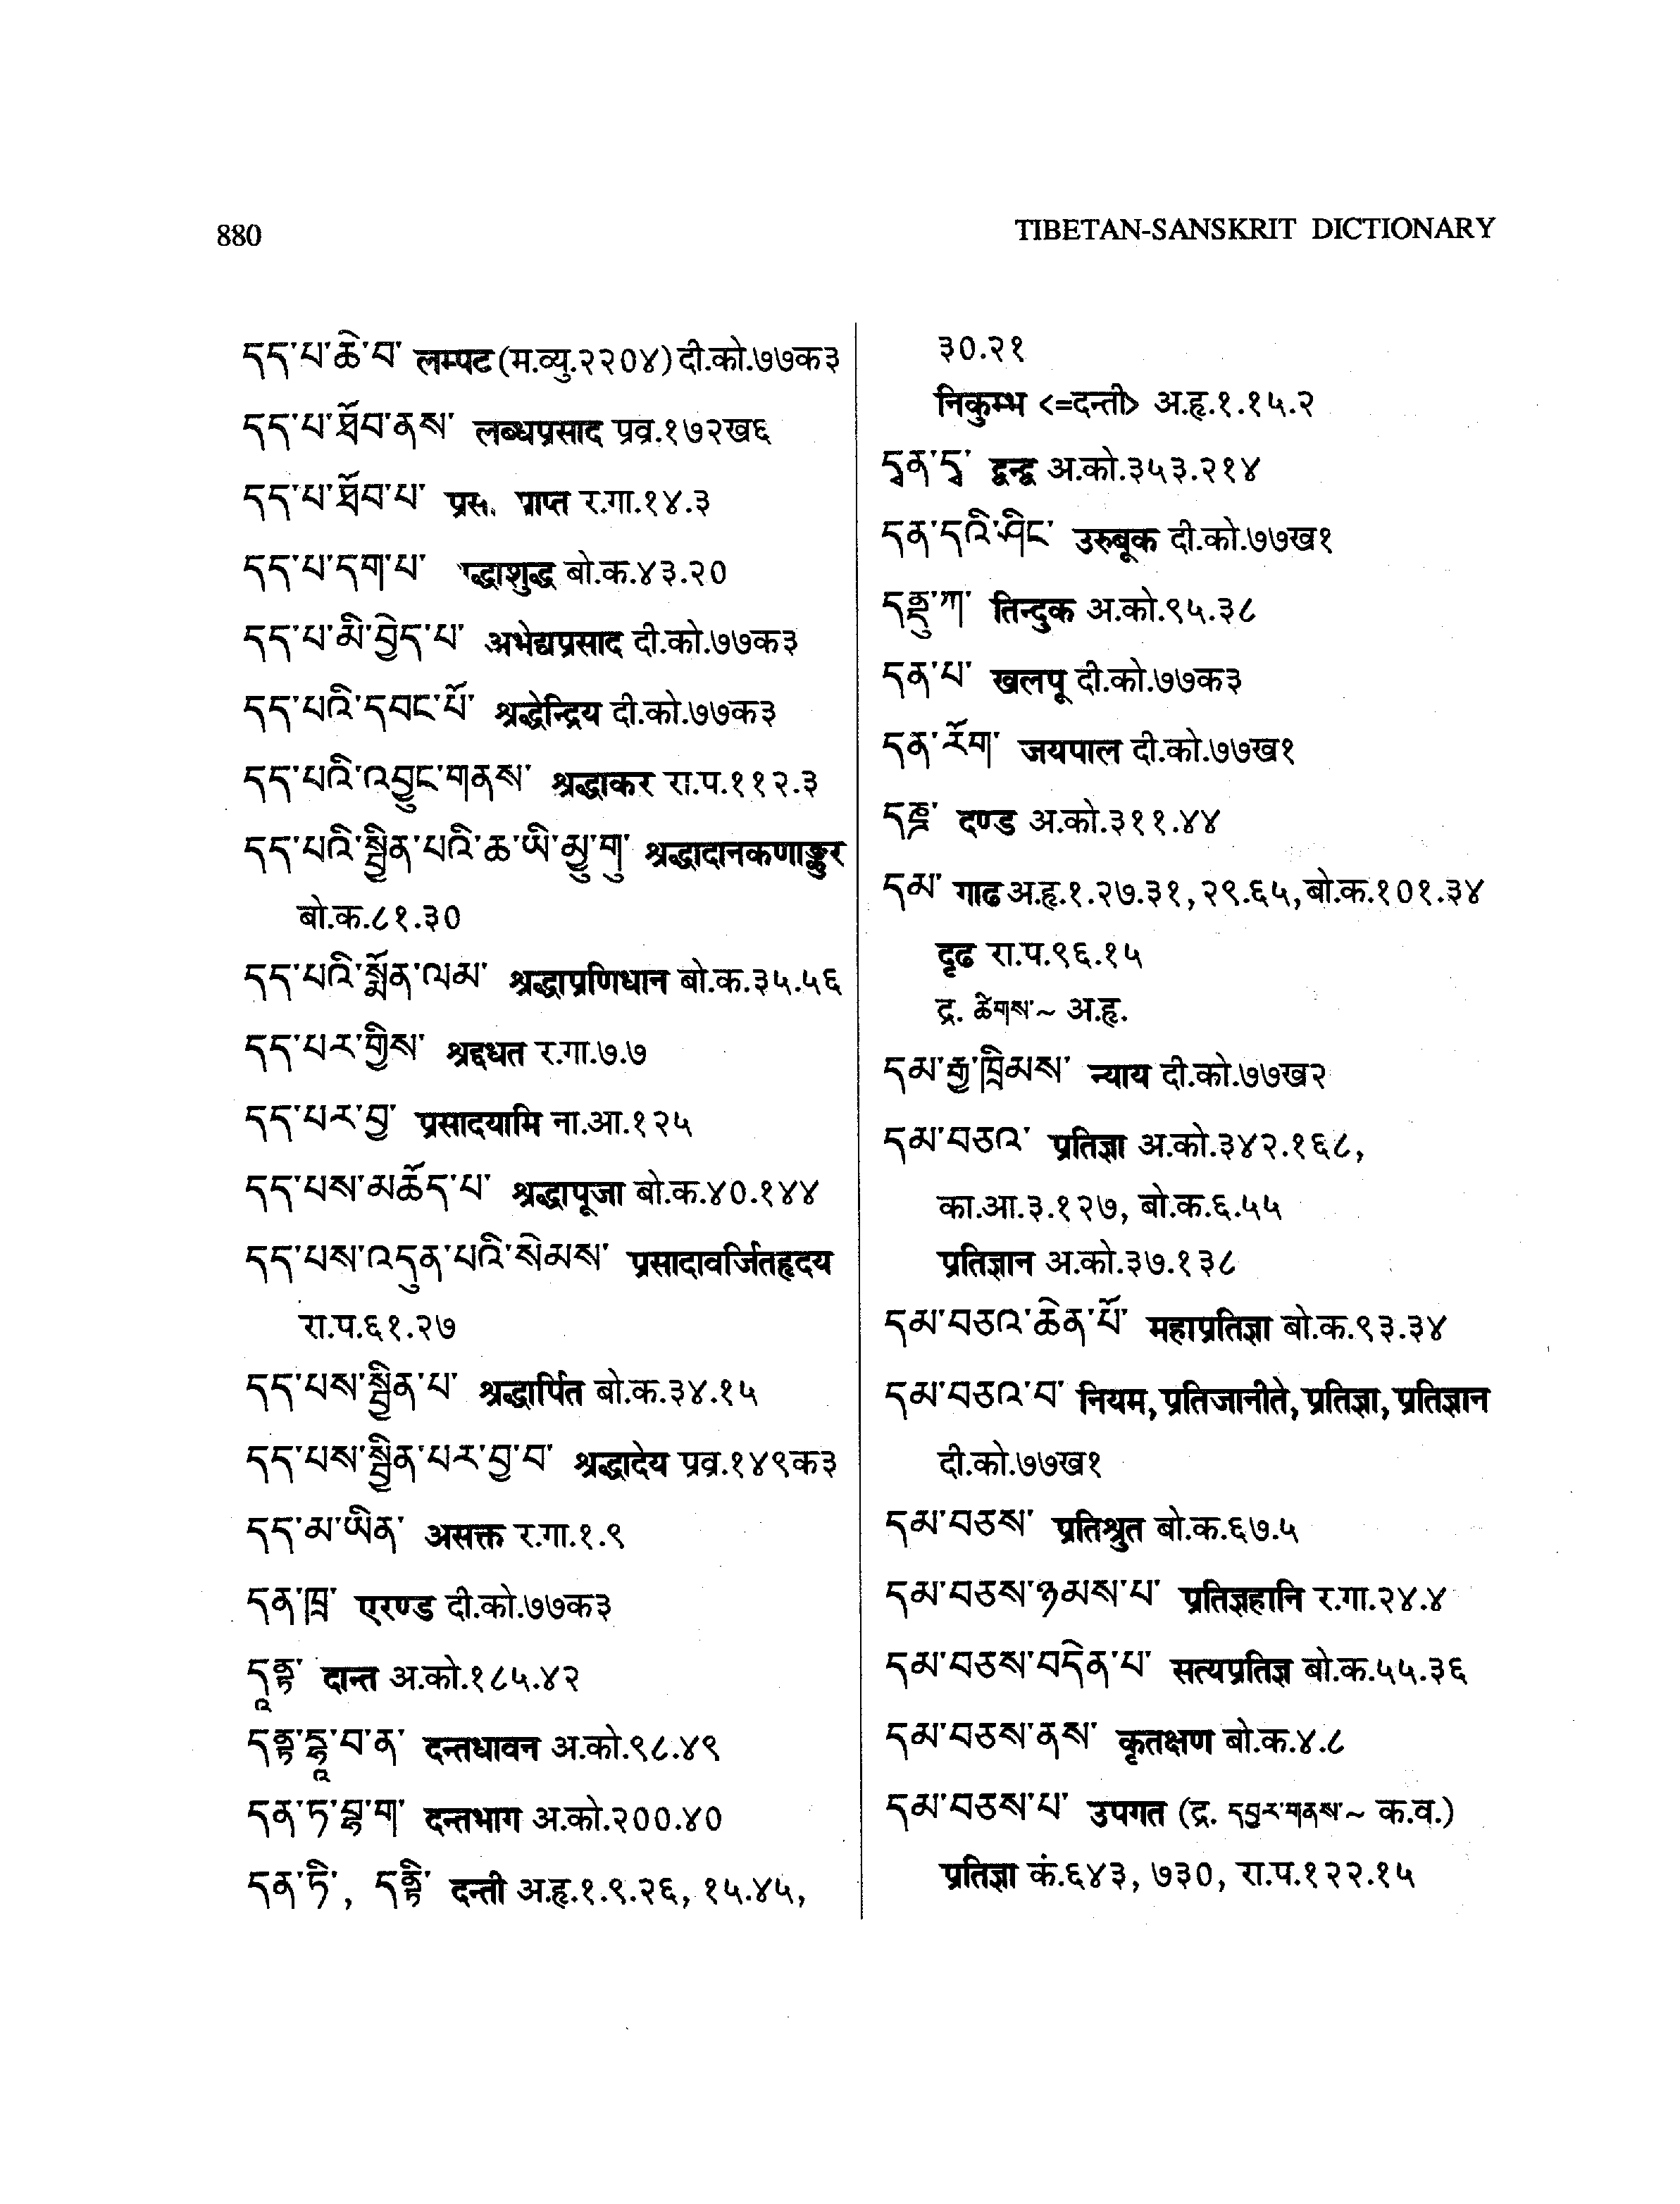 880
TIBETAN-SANSKRIT DICTIONARY
དད་པ་ཆེ་བ་ लम्पट (म.व्यु.२२०४) दी.को.७७क३
དད་པ་ཐོབ་ནས་ लब्धप्रसाद प्रव्र.१७२ख६
དད་པ་ཐོབ་པ་ र.गा.१४.३
དད་པ་དག་པ་ बो.क.४३.२०
དད་པ་མི་བྱེད་པ་ अभेद्यप्रसाद दी.को.७७क३
དད་པའི་དབང་པོ་ श्रद्धेन्द्रिय दी.को.७७क३
དད་པའི་འབྱུང་གནས་ श्रद्धाकर रा.प.११२.३
དད་པའི་སྦྱིན་པའི་ཆ་ཡི་མྱུ་གུ་ श्रद्धादानकणाङ्कुर
बो.क.८१.३०
དད་པའི་སྨོན་ལམ་ श्रद्धाप्रणिधान बो.क.३५.५६
དད་པར་གྱིས་ श्रद्दधत र.गा.७.७
དད་པར་བྱ་ प्रसादयामि ना.आ.१२५
དད་པས་མཆོད་པ་ श्रद्धापूजा बो.क.४०.१४४
དད་པས་འདུན་པའི་སེམས་ प्रसादावर्जितहृदय
रा.प.६१.२७
དད་པས་སྦྱིན་པ་ श्रद्धार्पित बो.क.३४.१५
དད་པས་སྦྱིན་པར་བྱ་བ་ श्रद्धादेय प्रव्र.१४९क३
དད་མ་ཡིན་ असक्त र.गा.१.९
དན་ཁྲ་ एरण्ड दी.को.७७क३
དཱནྟ་ दान्त अ.को.१८५.४२
དནྟ་དྷཱ་བ་ན་ दन्तधावन अ.को.९८.४९
དན་ཏ་བྷ་ག་ दन्तभाग अ.को.२००.४०
དན་ཏི་, དནྟི་ दन्ती अ.हृ.१.९.२६, १५.४५,
३०.२१
निकुम्भ <=दन्ती> अ.हृ.१.१५.२
དྭན་དྭ་ द्वन्द्व अ.को.३५३.२१४
དན་དའི་ཤིང་ उरुबूक दी.को.७७ख१
དནྡུ་ཀ་ तिन्दुक अ.को.९५.३८
དན་པ་ खलपू दी.को.७७क३
དན་རོག་ जयपाल दी.को.७७ख१
དཎྜ་ दण्ड अ.को.३११.४४
དམ་ गाढ अ.हृ.१.२७.३१, २९.६५, बो.क.१०१.३४
दृढ रा.प.९६.१५
द्र. ཚིགས་~ अ.हृ.
དམ་རྒྱ་ཁྲིམས་ न्याय दी.को.७७ख२
དམ་བཅའ་ प्रतिज्ञा अ.को.३४२.१६८,
का.आ.३.१२७, बो.क.६.५५
प्रतिज्ञान अ.को.३७.१३८
དམ་བཅའ་ཆེན་པོ་ महाप्रतिज्ञा बो.क.९३.३४
དམ་བཅའ་བ་ नियम, प्रतिजानीते, प्रतिज्ञा, प्रतिज्ञान
दी.को.७७ख१
དམ་བཅས་ प्रतिश्रुत बो.क.६७.५
དམ་བཅས་ཉམས་པ་ प्रतिज्ञहानि र.गा.२४.४
དམ་བཅས་བདེན་པ་ सत्यप्रतिज्ञ बो.क.५५.३६
དམ་བཅས་ནས་ कृतक्षण बो.क.४.८
དམ་བཅས་པ་ उपगत (द्र. དབྱར་གནས་~ क.व.)
प्रतिज्ञा कं.६४३, ७३०, रा.प.१२२.१५